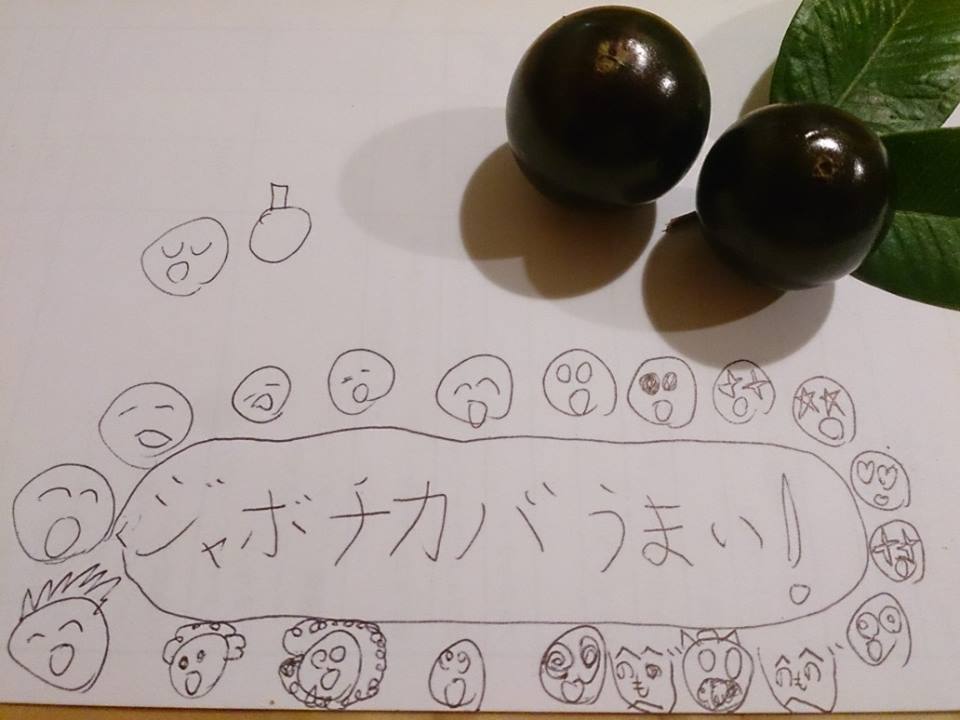 ジャボチカバうまい!